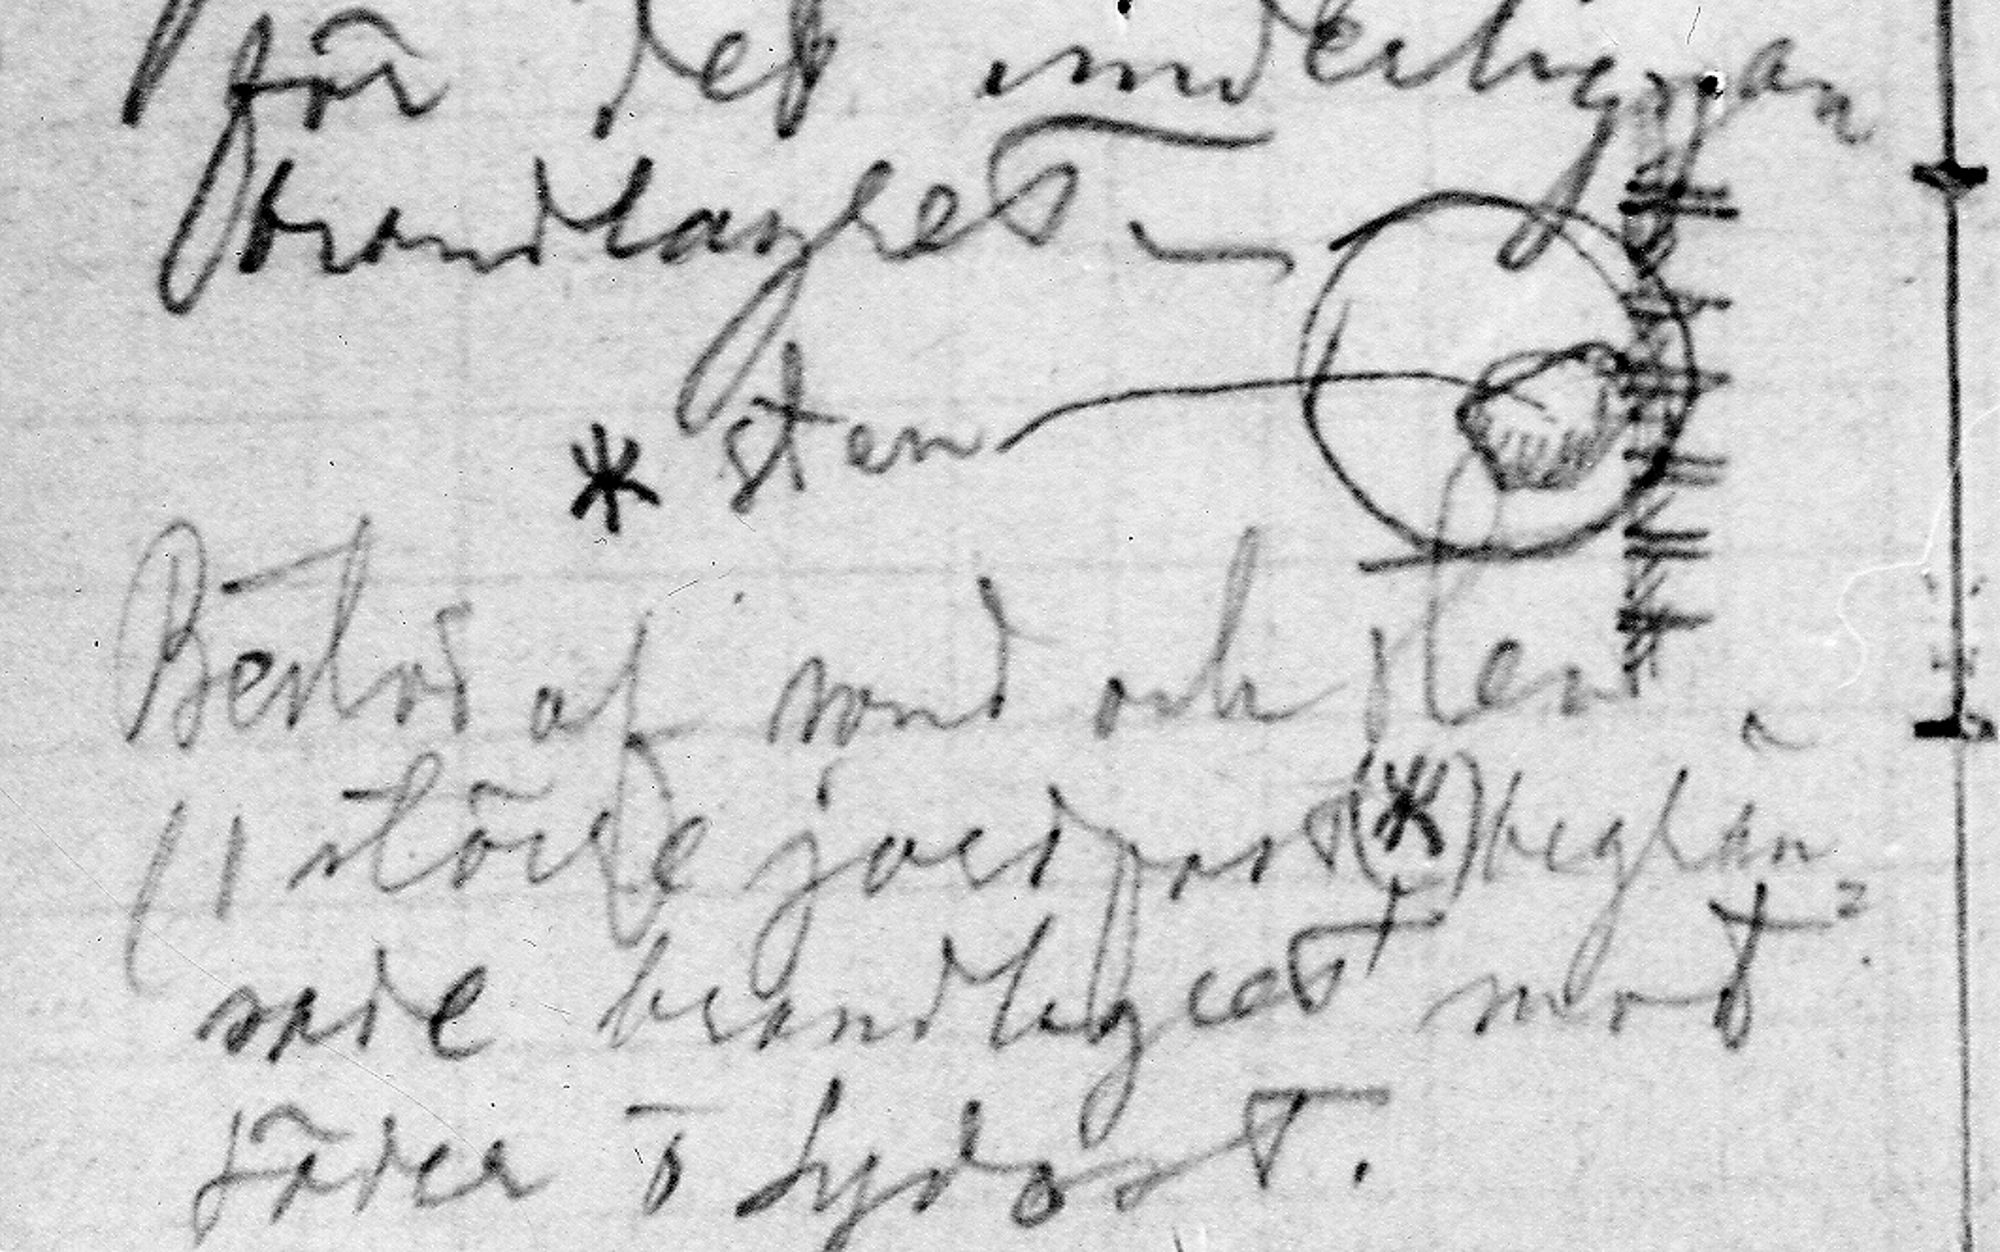 för det underligran
brandlagret —
* sten
Bestod af sand och sten
(1 större jordfast (*) begrän
sade brandlagret mot
söder o sydost.